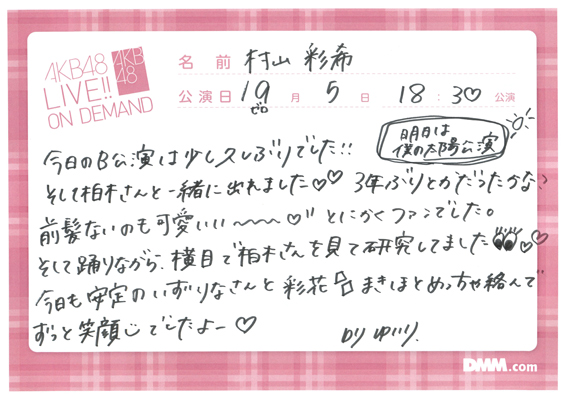 AKB48
LIVE!!
ON DEMAND
AKB
48
名前 村山 彩希
公演日 10 月 5 日 18:30♡ 公演
ゼロ
明日は
僕の太陽公演
今日のB公演は少し久しぶりでした!!
そして柏木さんと一緒に出れました♡♡ 3年ぶりとかだったかな?
前髪ないのも可愛いい〜〜〜♡" とにかくファンでした。
そして踊りながら、横目で柏木さんを見て研究してました👀♡♡
今日も安定のいずりなさんと彩花とまきほとめっちゃ絡んで
ずっと笑顔じでしたよー♡
by ゆいり.
DMM.com